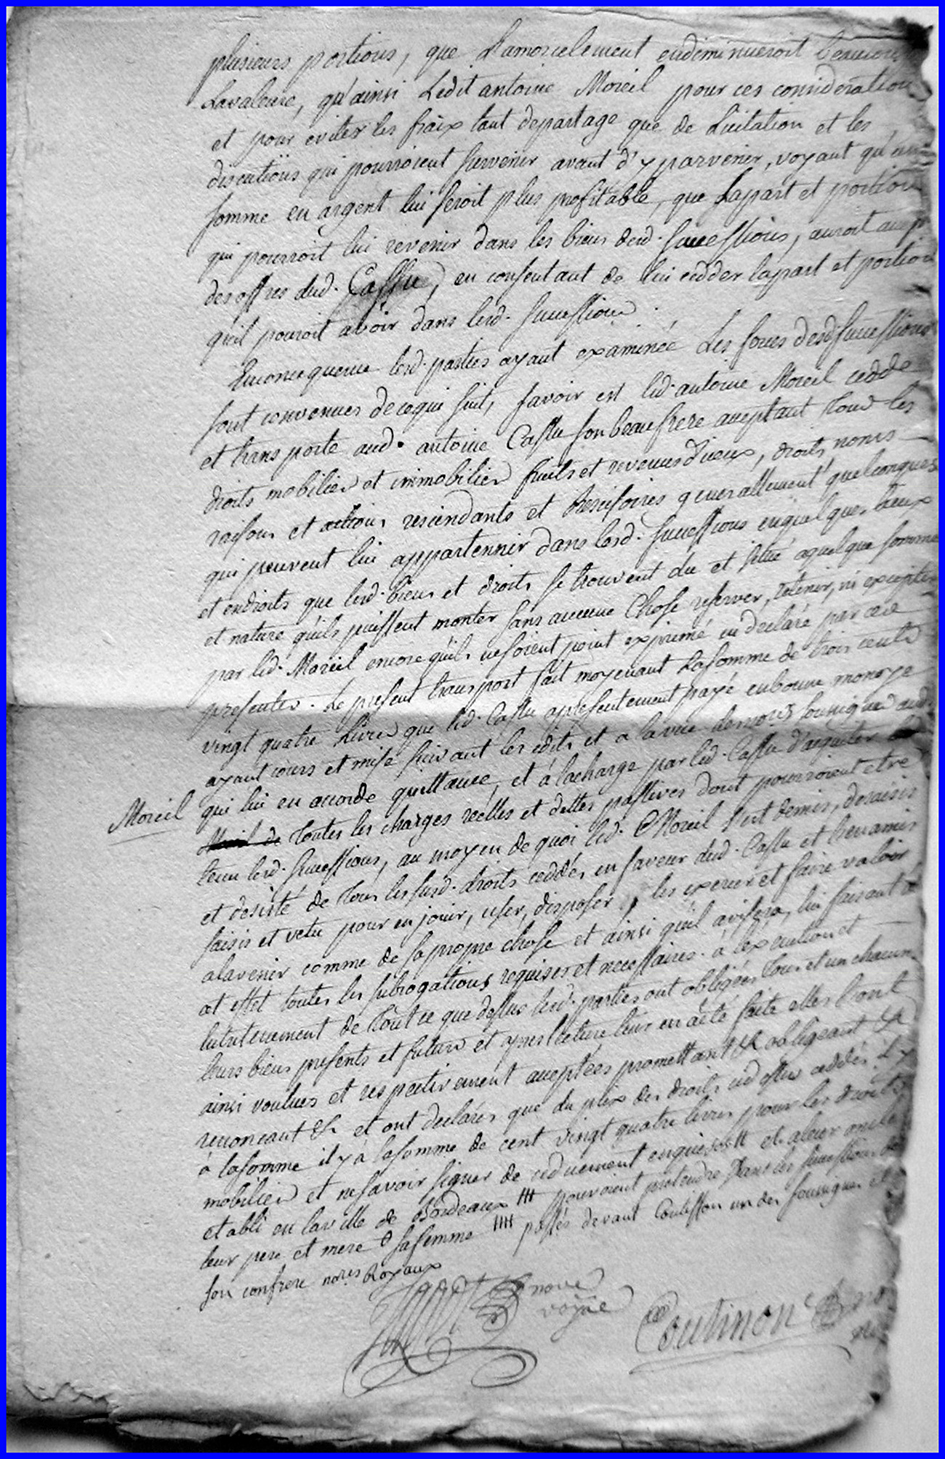 plusieurs portions, que Lamorcelement endiminueroit beaucoup
Lavaleure, qu'ainsi Ledit antoine Moreil pour ces consideration
et pour eviter les fraix tant departage que de Licitation et les
discutions qui pourroient survenir avant d'y parvenir, voyant qu'une
somme en argent lui seroit plus profitable, que Lapart et portion
qui pourroit lui revenir dans les biens desd. successions, auroit
des offres dud. Cassu, en consentant de lui cedder lapart et portion
quil pouroit avoir dans lesd. succession.
Enconcequence lesd. parties ayant examinée Les forces desd successions
sont convenues de cequi suit, savoir est led. antoine Moreil cedde
et transporte aud. antoine Cassu son beaufrere aceptant tous les
droits mobilier et immobilier fruits et revenus d'iceux, droits, noms
raisons et actions rescindants et rescisoires generallement quelconques
qui peuvent lui appartennir dans lesd. successions en quelques lieux
et endroits que lesd. biens et droits se trouvent du et situé aquelque somme
et nature qu'ils puissent monter sans aucune Chose reserver, retenir, ni excepter
par led. Moreil encore qu'ils ne soient point exprimé ou declaré par ces
presentes. Le present transport fait moyenant Lasomme de trois cents
vingt quatre livres que led. Cassu apresentement payé en bonne monoye
ayant cours et mise suivant les edits et a la vüe de nores soussigné aud
Moreil qui lui en accorde quittance, et à lacharge par led. Cassu d'aquiter
toutes les charges reelles et dettes passives dont pourroient etre
tenu lesd. successions, au moyen de quoi led. Moreil s'est demis, desaisis
et desisté de tous les susd. droits ceddés en faveur dud. Cassu et
saisis et vetu pour en jouir, user, disposer, les exercer et faire valoir
alavenir comme de sa propre chose et ainsi qu'il avisera, lui faisant a
cet effet toutes les subrogations requises et necessaires. a l'exécution et
lentretenement de tout ce que dessus lesd. parties ont obligées tous et un chacun
leurs biens presents et futurs et apres lecture leur en aété faite elles l'ont
ainsi voulues et respectivement aceptées promettant & obligeant &
renonceant & et ont declarés que du prix des droits cidessus ceddés
à lasomme il y à lasomme de cent vingt quatre livres pour les droits
mobilier et ne savoir signer de ceduement enquis
etabli en la ville de Bordeaux pouvoient pretendre dans les successions de
leur pere et mere sa femme passés devant Coutisson un des soussignés et
son confrere nores Royaux